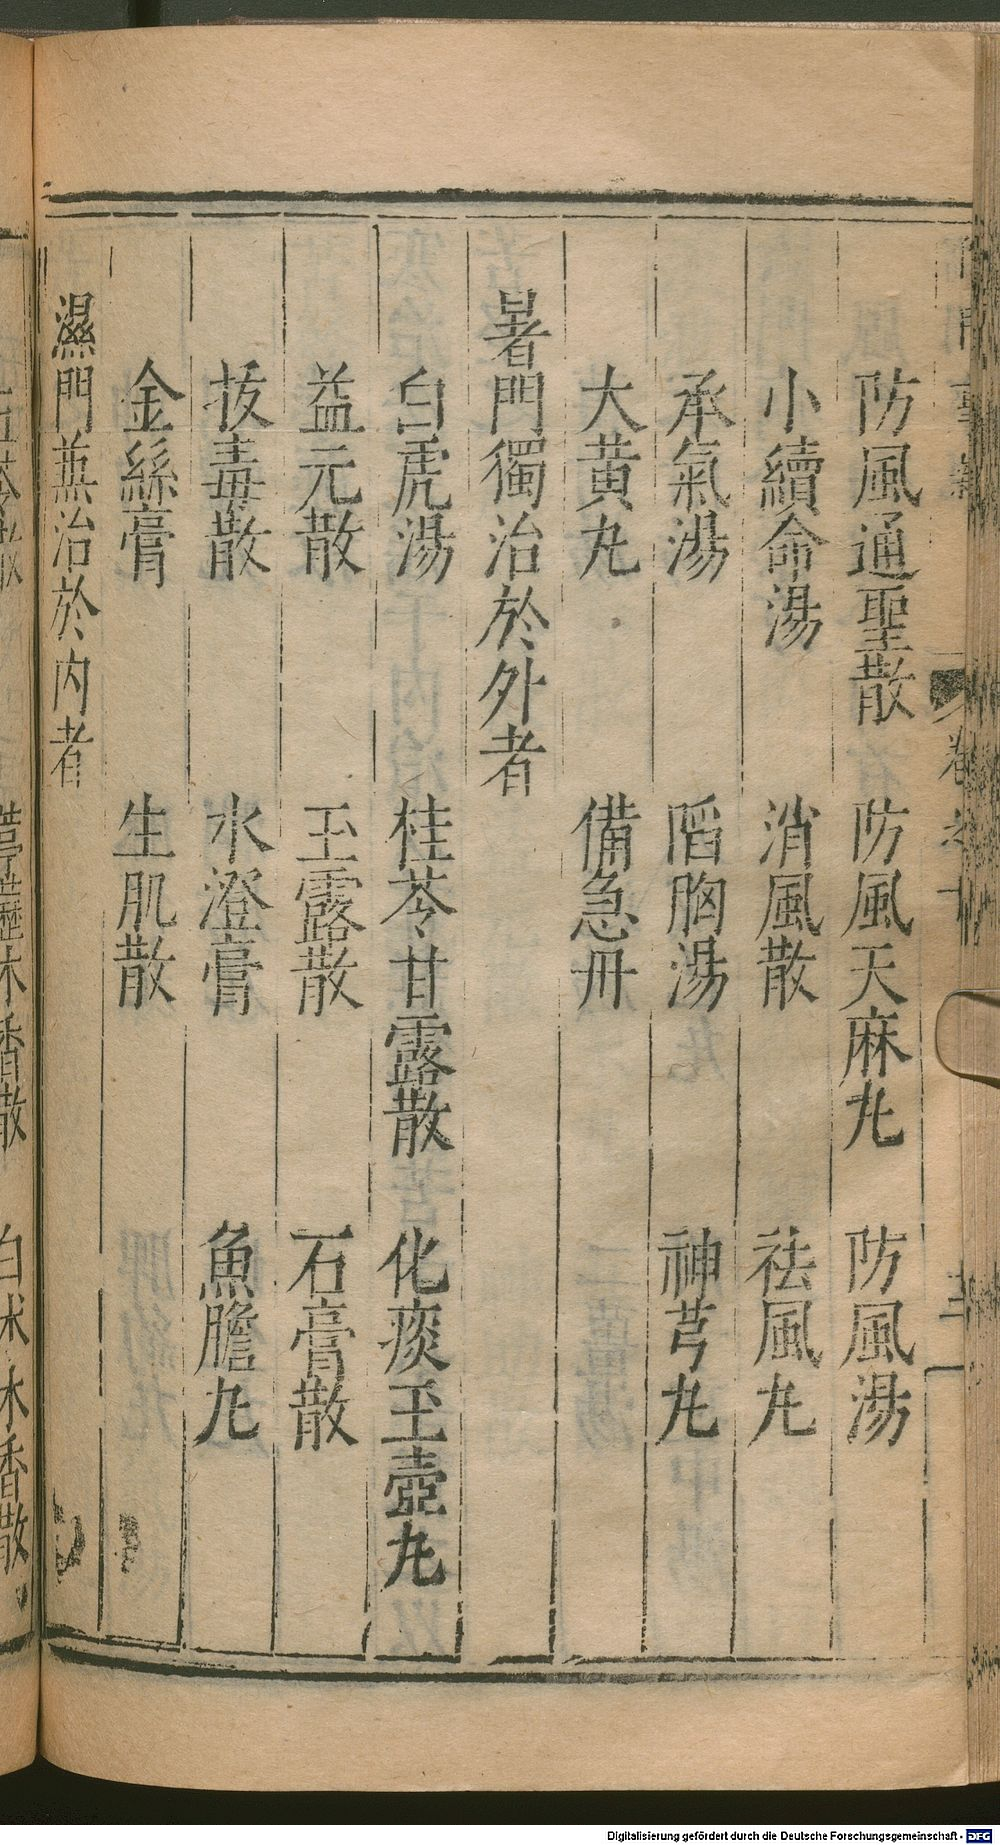 防風通聖散 防風天麻丸 防風湯
小續命湯 消風散 祛風丸
承氣湯 陷胸湯 神芎丸
大黃丸 備急丹
暑門獨治於外者
白虎湯 桂苓甘露散 化痰玉壺丸
益元散 玉露散 石膏散
拔毒散 水澄膏 魚膽丸
金絲膏 生肌散
濕門兼治於內者
Digitalisierung gefördert durch die Deutsche Forschungsgemeinschaft - DFG